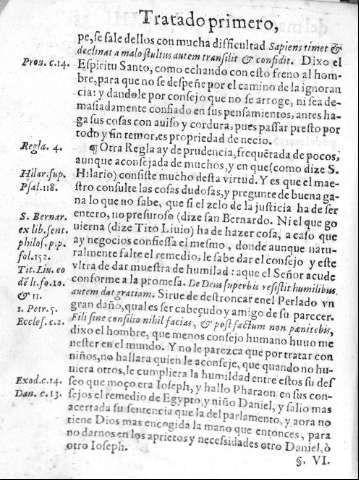 Tratado primero,
pe, se sale dellos con mucha difficultad. Sapiens timet &
Prou. c. 14.
declinat a malo stultus autem transilit & confidit. Dixo el
Espiritu Santo, como echando con esto freno al hom-
bre, para que no se despeñe por el camino de la ignoran
cia: y dandole por consejo que no se arroge, ni sea de-
masiadamente confiado en sus pensamientos, antes ha-
ga sus cosas con auiso y cordura, pues passar presto por
todo y sin temor, es propiedad de necio.
Regla. 4.
¶ Otra Regla ay de prudencia, frequẽtada de pocos,
aunque aconsejada de muchos, y en que (como dize S.
Hilar. sup.
Hilario) consiste mucho desta virtud. Y es que el mae-
Psal. 118.
stro consulte las cosas dudosas, y pregunte de buena ga-
na lo que no sabe, que si el zelo de la justicia ha de ser
S. Bernar.
entero, no presuroso (dize san Bernardo. Ni el que go
ex lib. sent.
uierna (dize Tito Liuio) ha de hazer cosa, a caso que
philos. p. p.
ay negocios confiessa el mesmo, donde aunque natu-
fol. 152.
ralmente falte el remedio, le sabe dar el consejo y este
Tit. Liu. eo
vltra de dar muestra de humildad: a que el Señor acude
dẽ li. fo. 20.
conforme a la promesa. De Deus superbis resistit humilibus
& 11.
autem dat gratiam. Sirue de destroncar en el Perlado vn
1. Petr. 5.
gran daño, qual es ser cabeçudo y amigo de su parecer.
Eccles. c. 2.
Fili sine consilio nihil facias, & post factum non pænitebis,
dixo el hombre, que menos consejo humano huuo me
nester en el mundo. Y no le parezca que por tratar con
niños, no hallara quien le aconseje, que quando no hu-
niera otros, le cumpliera la humildad entre estos su des
Exod. c. 14.
seo que moço era Ioseph, y hallo Pharaon en sus con-
Dan. c. 13.
sejos el remedio de Egypto, y niño Daniel, y salio mas
acertada su sentencia que la del parlamento, y aora no
tiene Dios mas encogida la mano que entonces, para
no darnos en los aprietos y necessidades otro Daniel, ò
otro Ioseph.
§. VI.